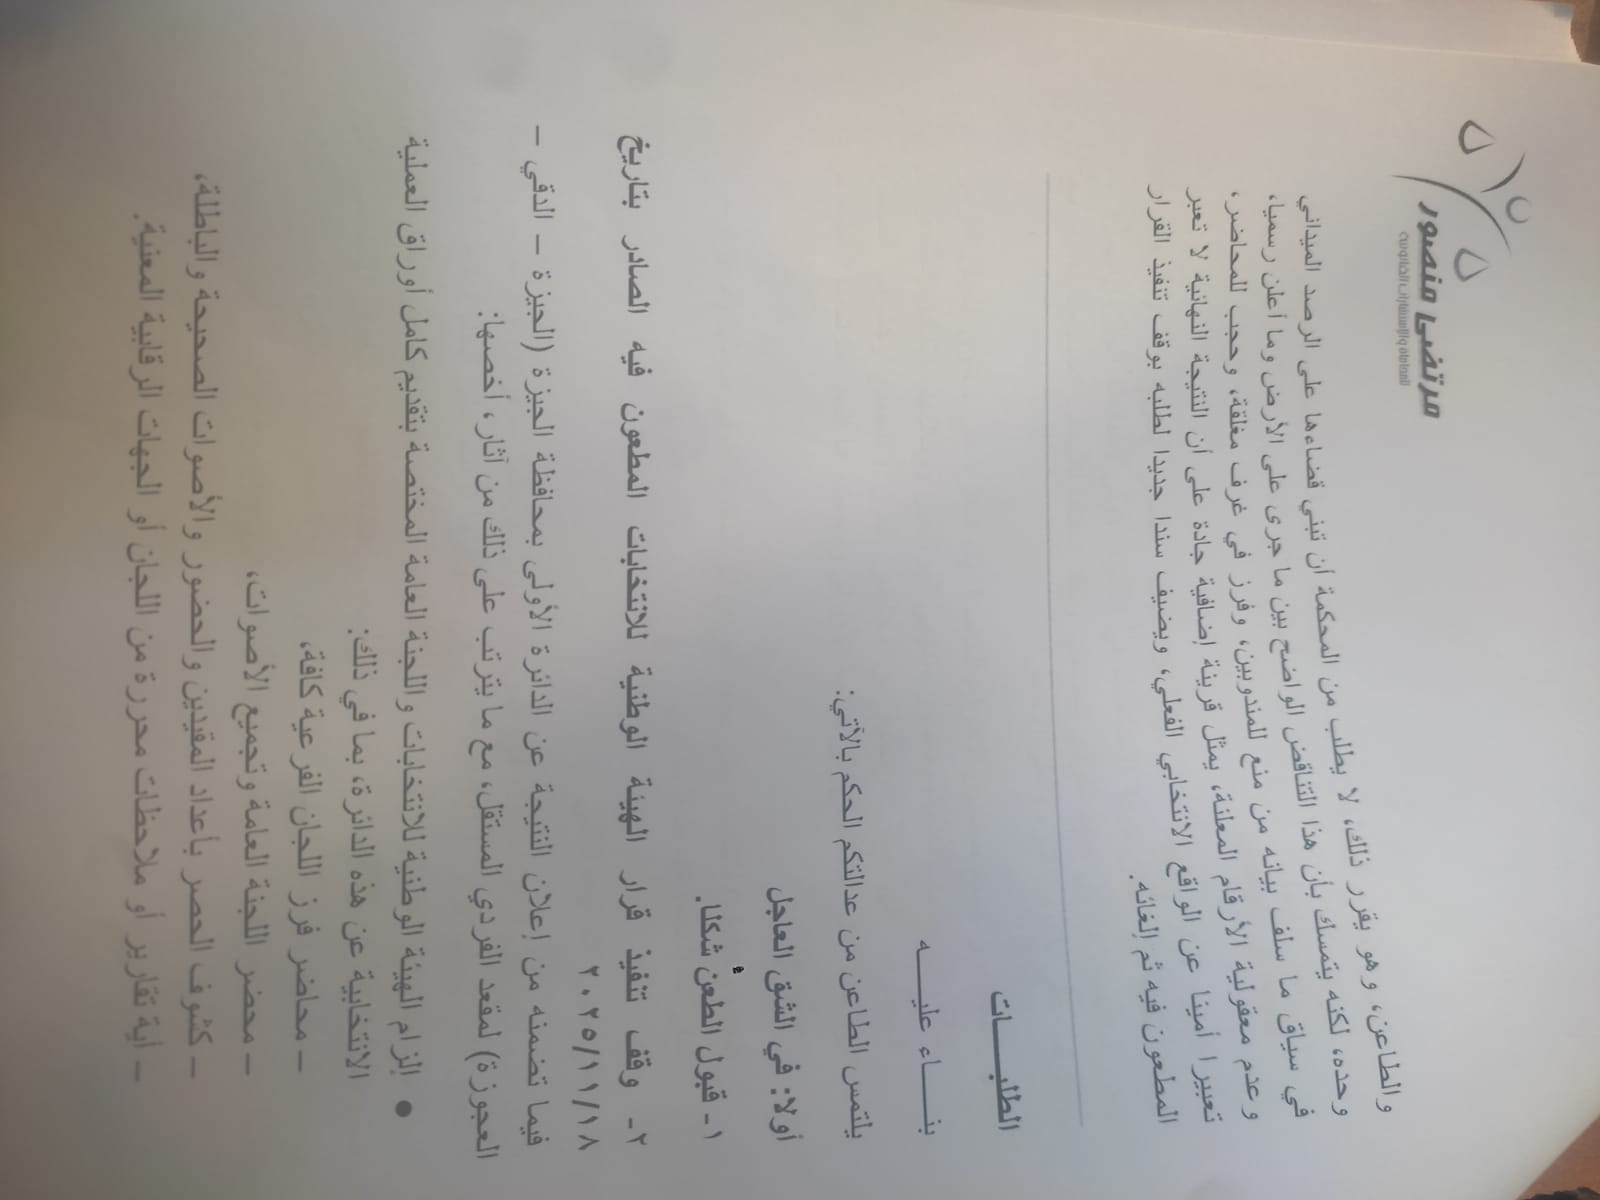 مرتضى منصور
للمحاماة والإستشارات القانونية
والطاعن، وهو يقرر ذلك، لا يطلب من المحكمة أن تبني قضاءها على الرصد الميداني
وحده، لكنه يتمسك بأن هذا التناقض الواضح بين ما جرى على الأرض وما أعلن رسميا،
في سياق ما سلف بيانه من منع للمندوبين، وفرز في غرف مغلقة، وحجب للمحاضر،
وعدم معقولية الأرقام المعلنة، يمثل قرينة إضافية جادة على أن النتيجة النهائية لا تعبر
تعبيرا أمينا عن الواقع الانتخابي الفعلي، ويضيف سندا جديدا لطلبه بوقف تنفيذ القرار
المطعون فيه ثم إلغائه.
الطلبـــــات
بنـــــاء عليـــــه
يلتمس الطاعن من عدالتكم الحكم بالآتي:
أولا: في الشق العاجل
١- قبول الطعن شكلا.
٢- وقف تنفيذ قرار الهيئة الوطنية للانتخابات المطعون فيه الصادر بتاريخ
٢٠٢٥/١١/١٨
فيما تضمنه من إعلان النتيجة عن الدائرة الأولى بمحافظة الجيزة (الجيزة – الدقي –
العجوزة) لمقعد الفردي المستقل، مع ما يترتب على ذلك من آثار، أخصها:
● إلزام الهيئة الوطنية للانتخابات واللجنة العامة المختصة بتقديم كامل أوراق العملية
الانتخابية عن هذه الدائرة، بما في ذلك:
– محاضر فرز اللجان الفرعية كافة،
– محضر اللجنة العامة وتجميع الأصوات،
– كشوف الحصر بأعداد المقيدين والحضور والأصوات الصحيحة والباطلة،
– أية تقارير أو ملاحظات محررة من اللجان أو الجهات الرقابية المعنية.